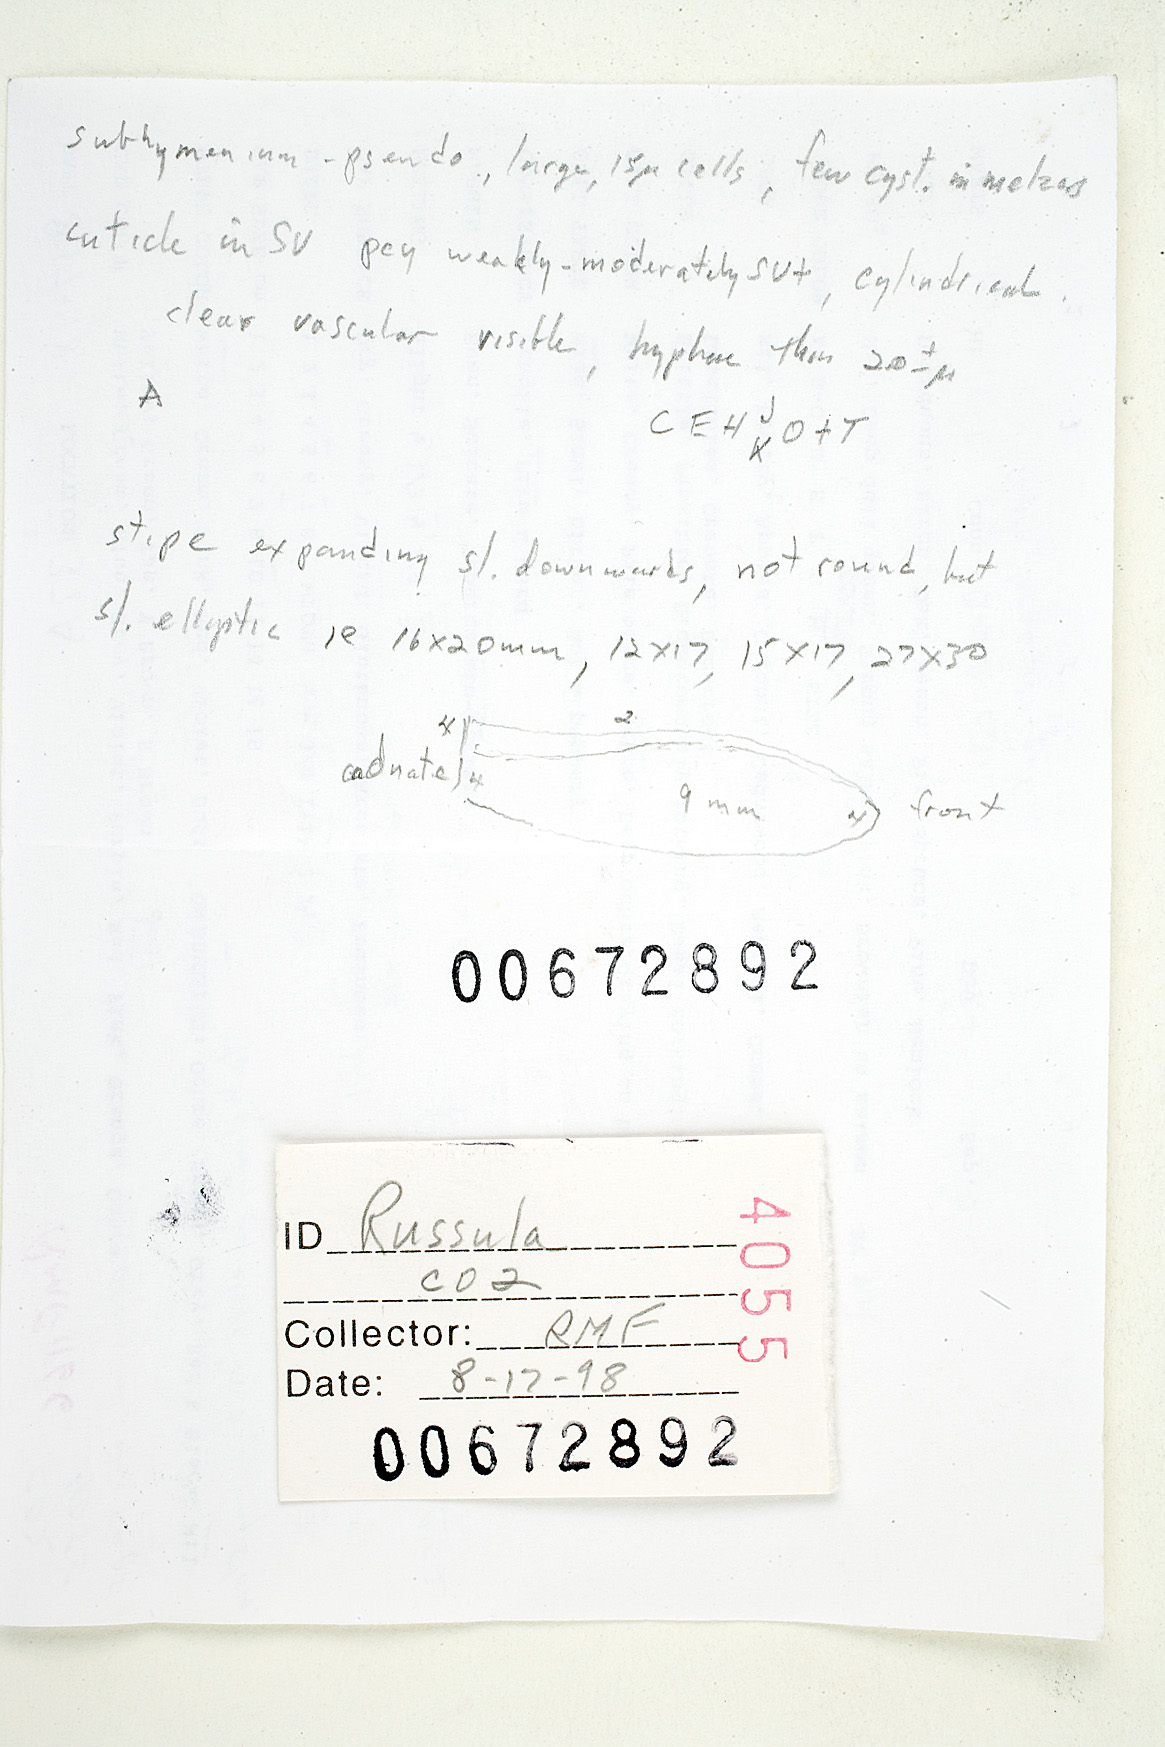 subhymenium - pseudo., large, 15µ cells, few cyst. in melzers
cuticle in SV pcy weakly-moderately SV+, cylindrical.
clear vascular visible, hyphae thin 20±µ
A
C E H J K O + T
stipe expanding sl. downwards, not round, but
sl. elliptic ie 16x20mm, 12x17, 15x17, 27x30
4 2
adnate 4 9 mm 4 front
00672892
ID Russula
CO2
Collector: RMF
Date: 8-17-98
4055
00672892